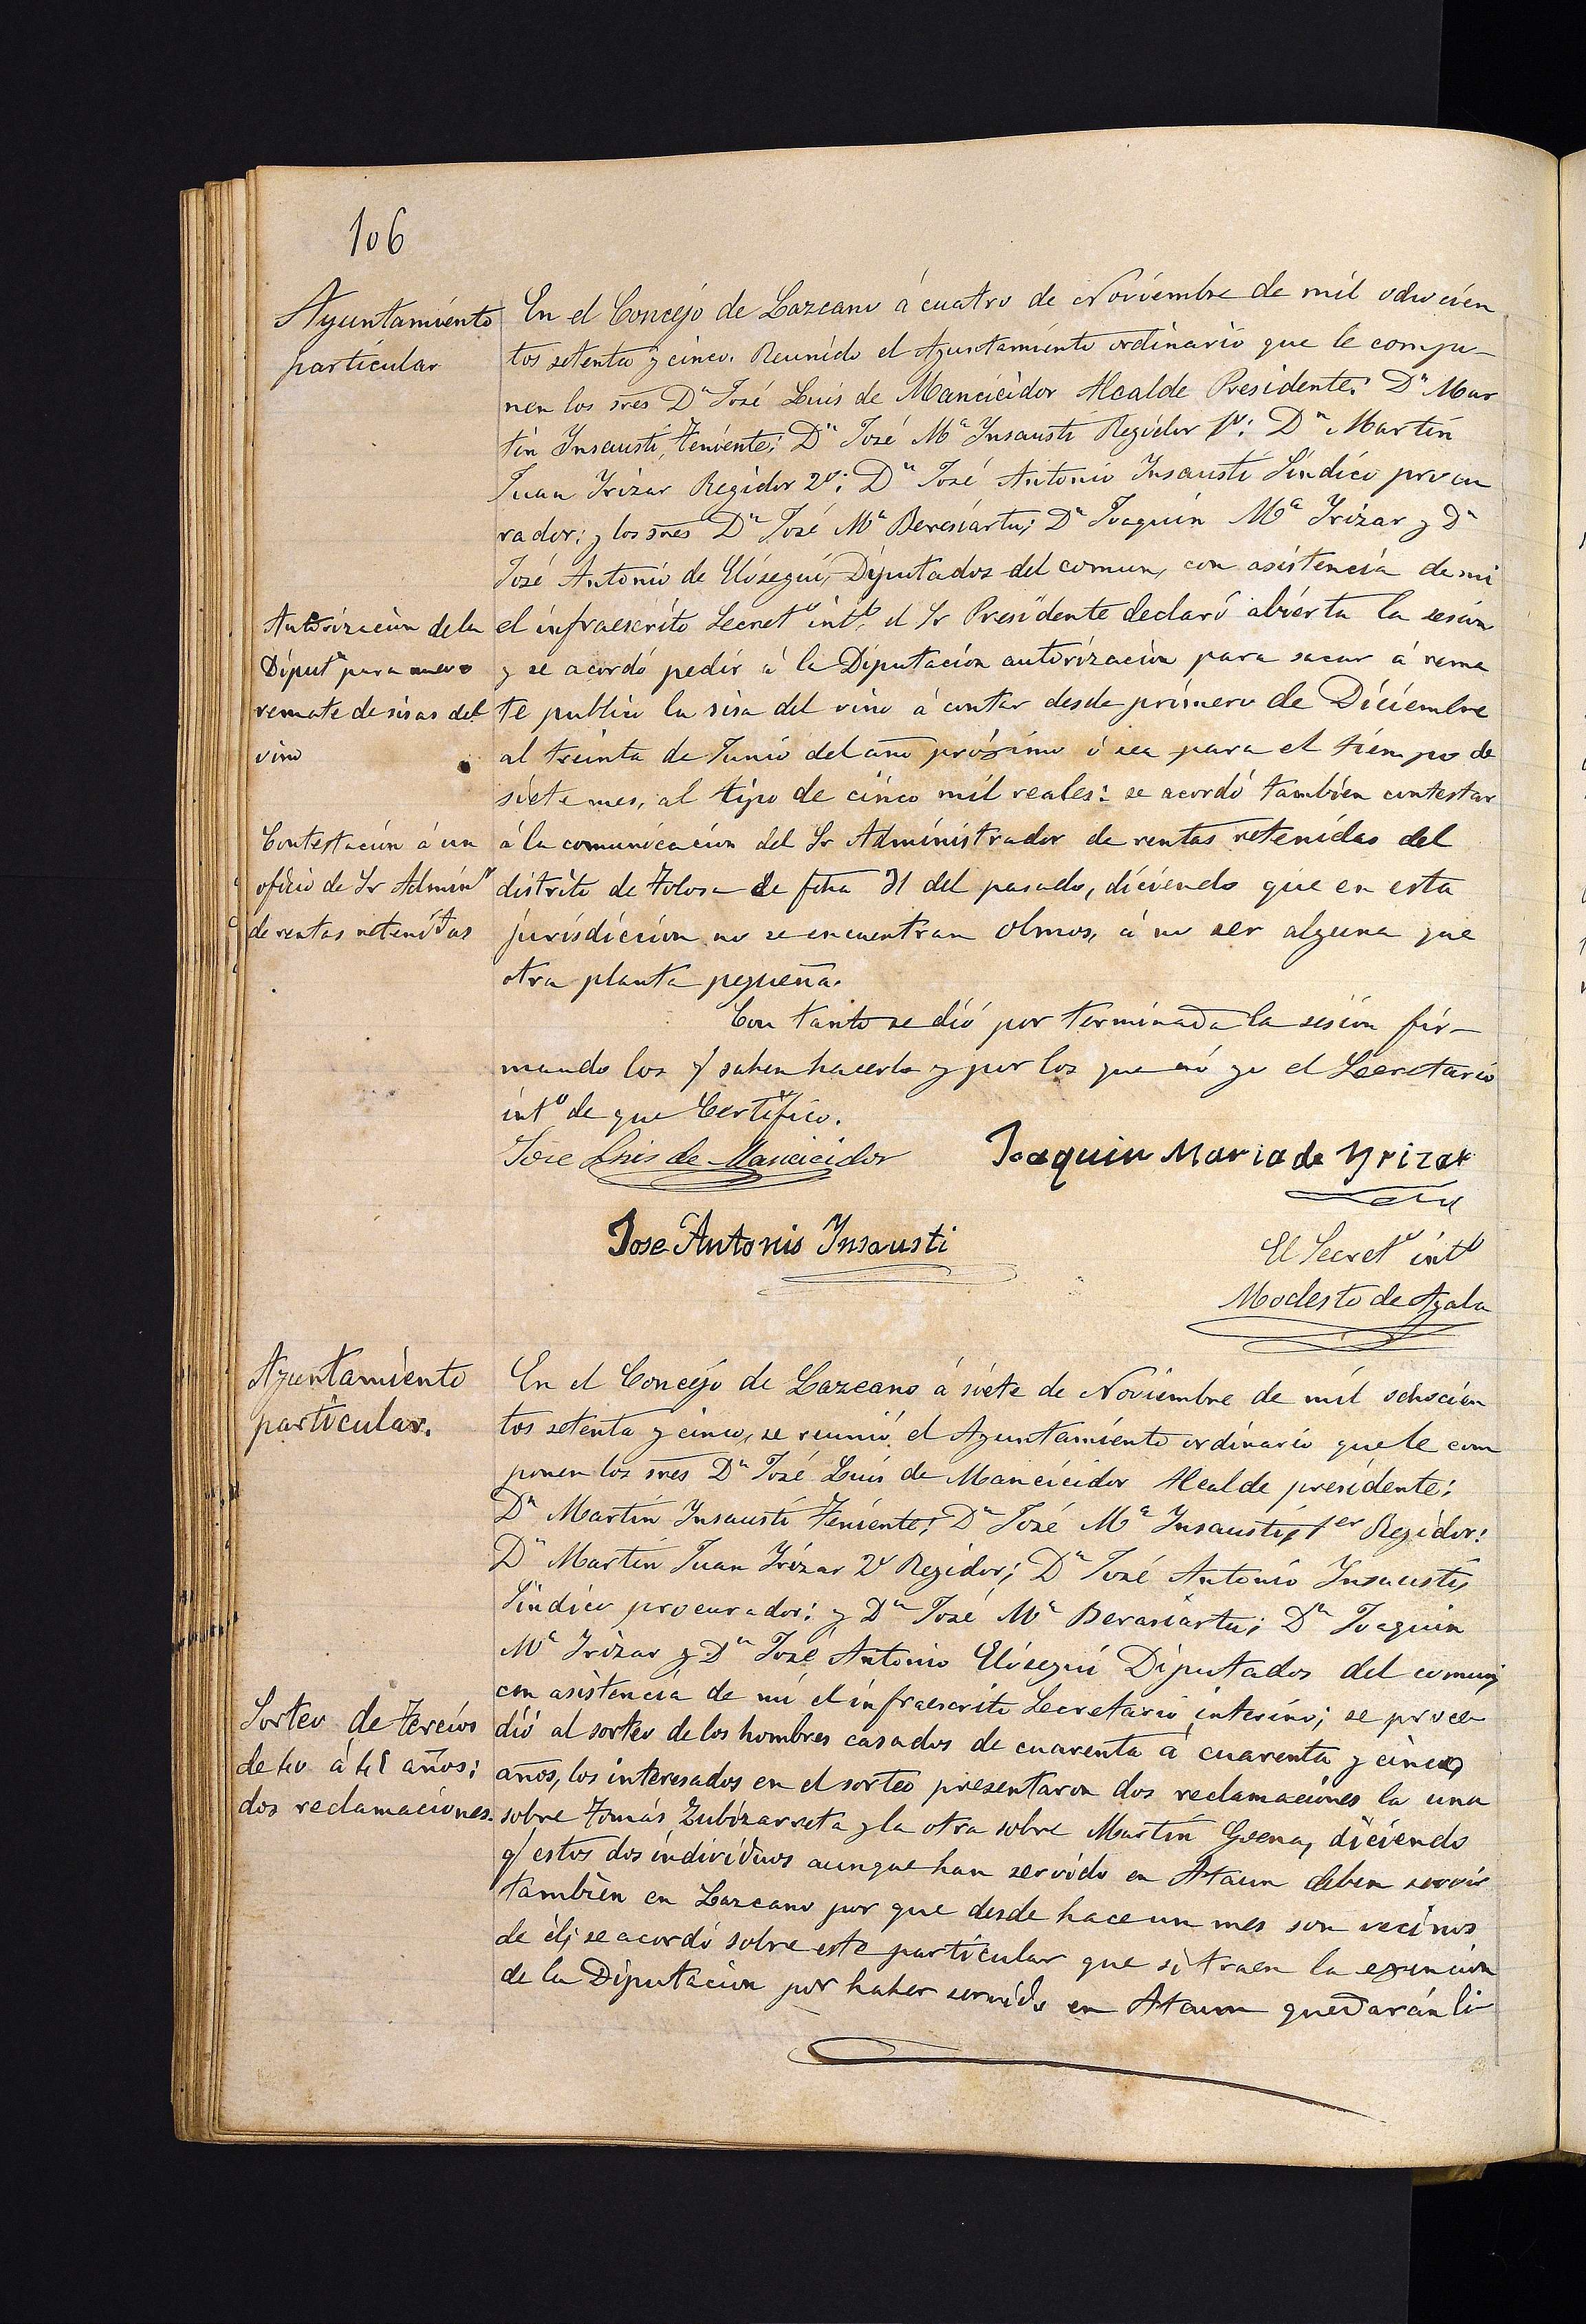 106
Ayuntamiento
particular
En el Concejo de Lazcano á cuatro de Noviembre de mil ochocien
tos setenta y cinco. Reunido el Ayuntamiento ordinario que le compo-
nen los sres Dn José Luis de Mancicidor Alcalde Presidente: Dn Mar
tin Insausti, Teniente; Dn José Ma Insausti Regidor 1o: Dn Martin
Juan Irizar Regidor 2o; Dn José Antonio Insausti Síndico procu
rador; y los sres Dn José Ma Beresiartu; Dn Joaquin Ma Irizar y Dn
José Antonio de Elósegui, Diputados del comun, con asistencia de mi
el infraescrito Secreto into, el Sr Presidente declaró abierta la sesion
y se acordó pedir á la Diputacion autorizacion para sacar á rema
te publico la sisa del vino á contar desde primero de Diciembre
al treinta de Junio del año próximo ó sea para el tiempo de
siete mes, al tipo de cinco mil reales: se acordó tambien contestar
á la comunicacion del Sr Administrador de rentas retenidas del
distrito de Tolosa de fha 31 del pasado, diciendo que en esta
jurisdiccion no se encuentran olmos, á no ser alguna que
otra planta pequeña.
Autorizacion de la
Diputn para nuevo
remate de sisas del
vino
Contestacion á un
oficio de Sr Adminr
de rentas retenidas
Con tanto se dió por terminada la sesion fir-
mando los q/ saben hacerlo y por los que nó yo el Secretario
into de que Certifico.
Jose Luis de Mancicidor
Joaquin Maria de Yrizar
Jose Antonio Ynsausti
El Secreto into
Modesto de Ayala
Ayuntamiento
particular.
En el Concejo de Lazcano á siete de Noviembre de mil ochocien
tos setenta y cinco, se reunió el Ayuntamiento ordinario que le com
ponen los sres Dn José Luis de Mancicidor Alcalde presidente;
Dn Martin Insausti Teniente; Dn José Ma Insausti, 1er Regidor:
Dn Martin Juan Irizar 2o Regidor; Dn José Antonio Insausti,
Síndico procurador: y Dn José Ma Berasiartu; Dn Joaquin
Ma Irizar y Dn José Antonio Elósegui Diputados del comun,
con asistencia de mi el infraescrito Secretario interino; se proce
dió al sorteo de los hombres casados de cuarenta á cuarenta y cinco
años, los interesados en el sorteo presentaron dos reclamaciones la una
sobre Tomás Zubizarreta y la otra sobre Martin Goena, diciendo
q/ estos dos individuos aunque han servido en Ataun deben servir
tambien en Lazcano por que desde hace un mes son vecinos
de él; se acordó sobre este particular que si traen la exencion
de la Diputacion por haber servido en Ataun quedarán li-
Sorteo de Tercios
de 40 á 45 años:
dos reclamaciones.